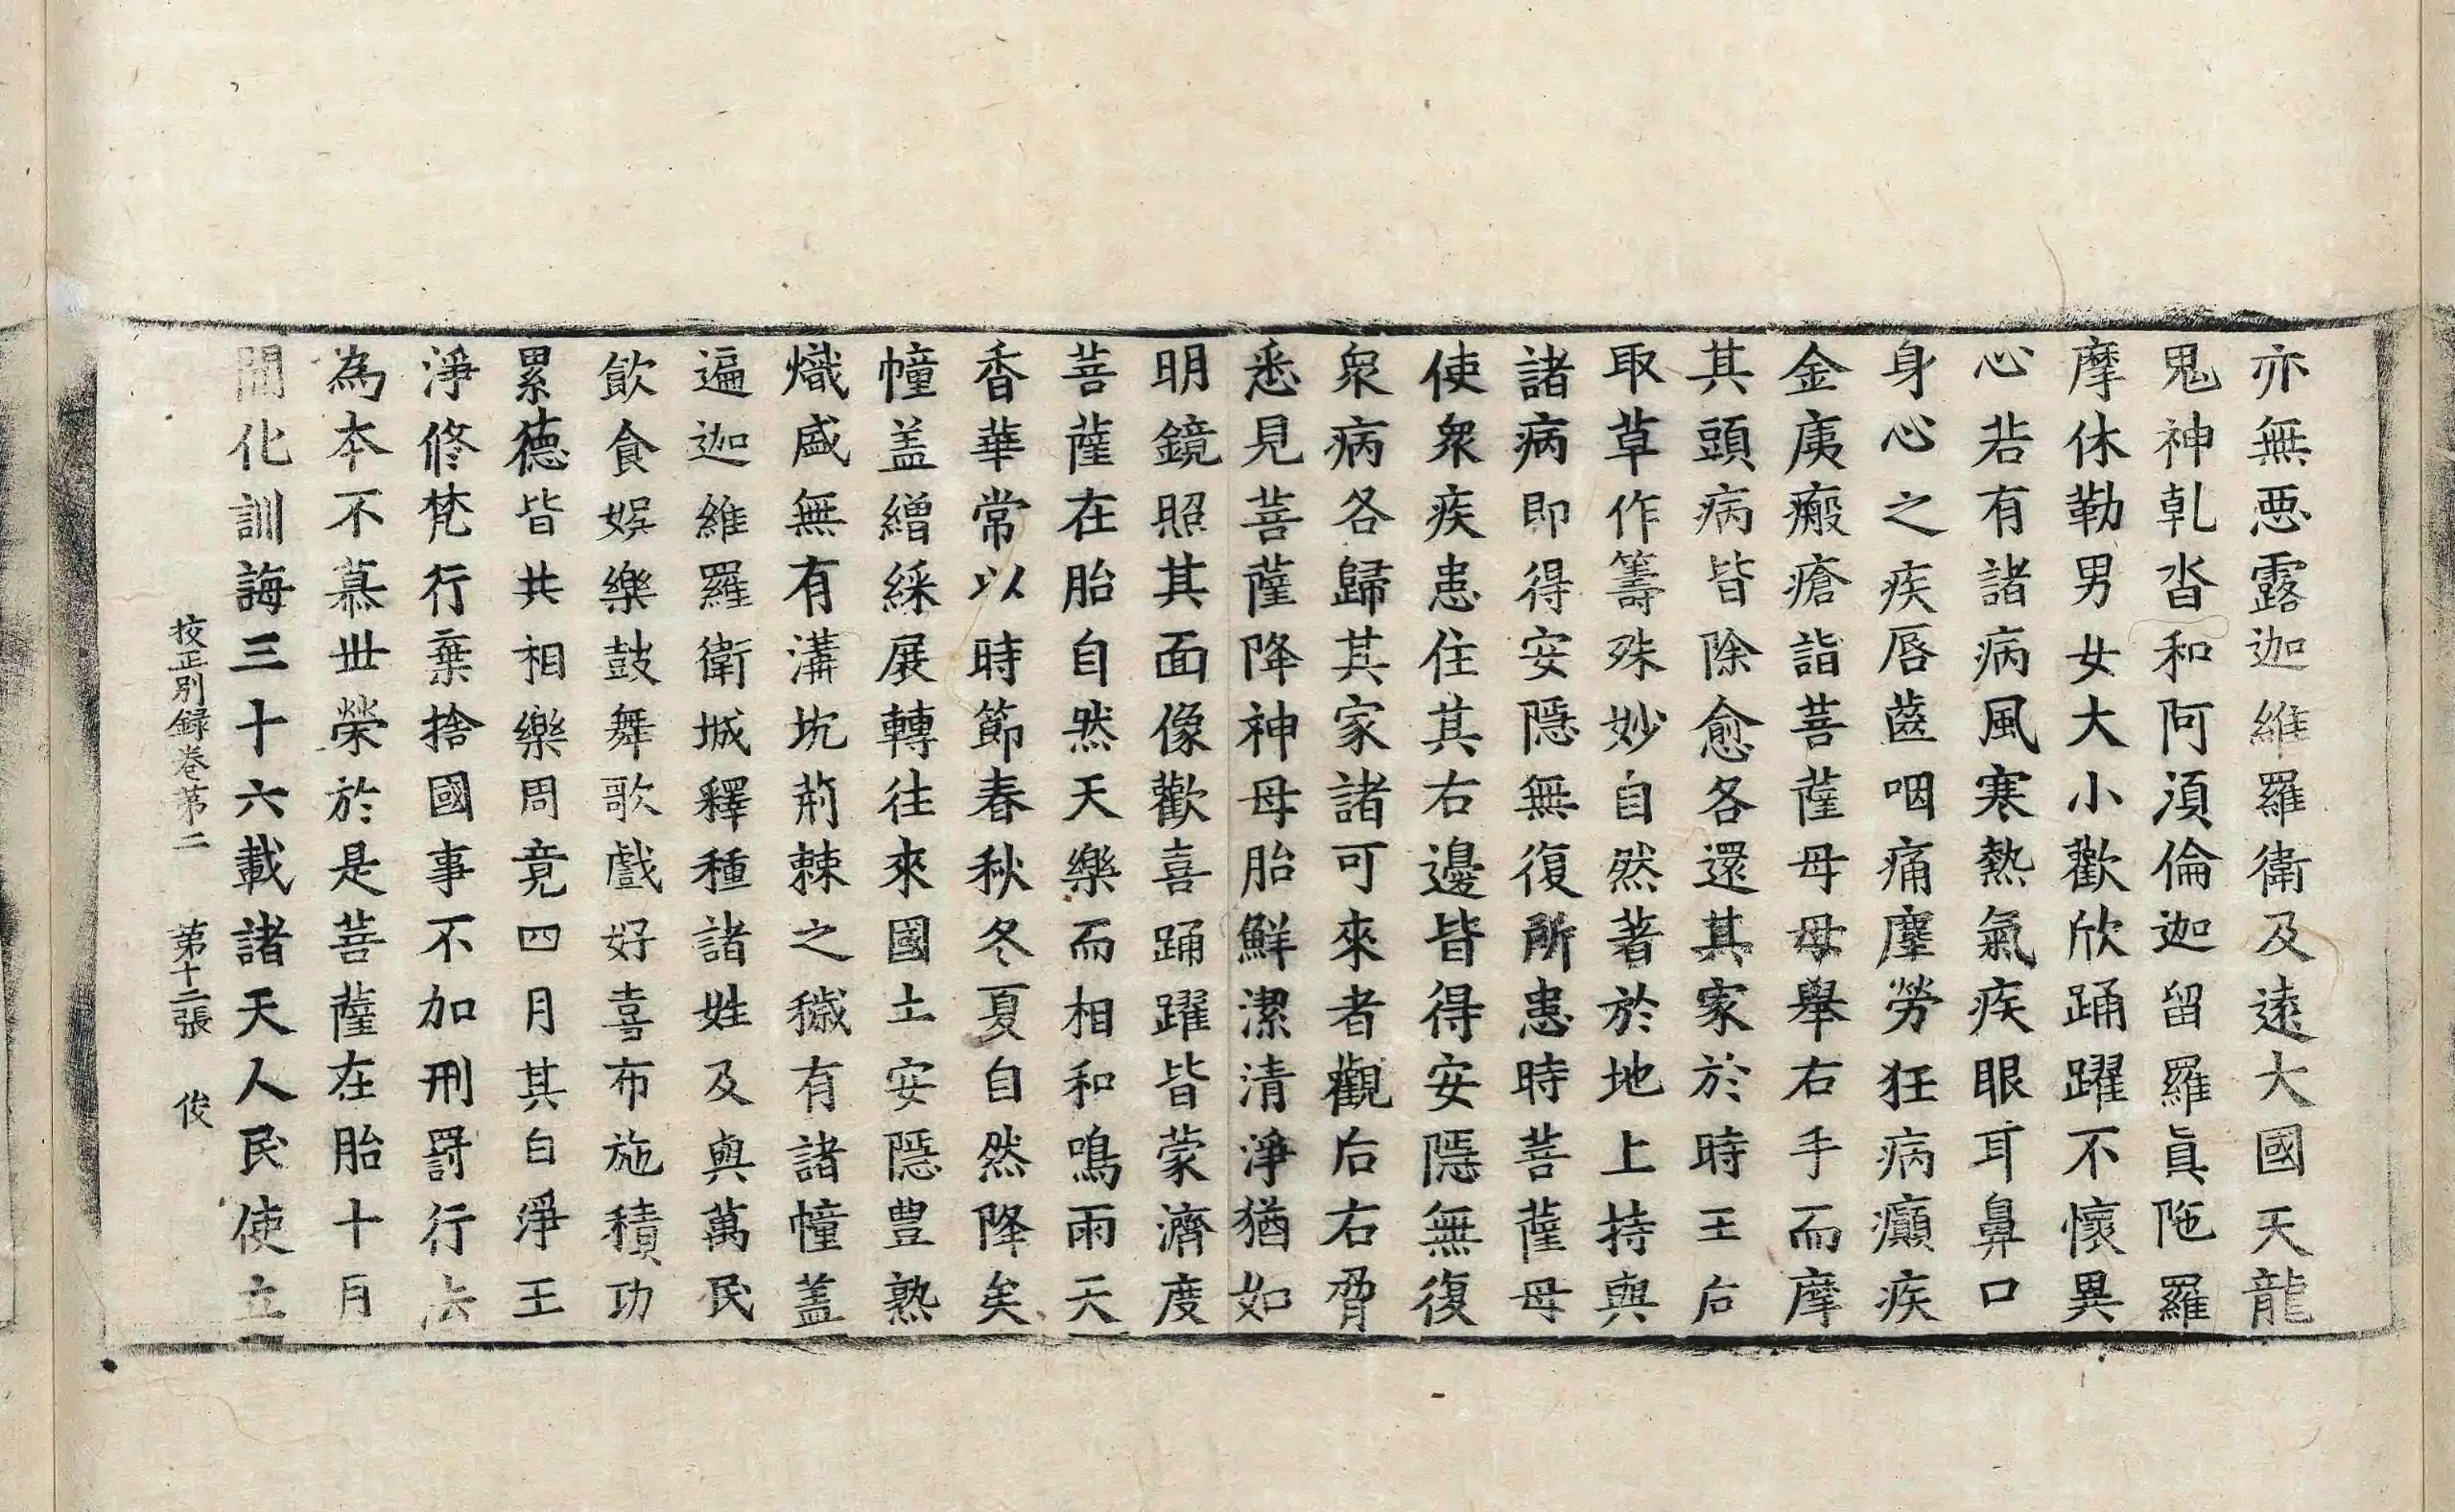 亦無惡露迦維羅衛及遠大國天龍
鬼神乹沓和阿湏倫迦留羅眞陁羅
摩休勒男女大小歡欣踊躍不懷異
心若有諸病風寒熱氣疾眼耳鼻口
身心之疾唇齒咽痛塵勞狂病癲疾
金痍瘢瘡詣菩薩母母舉右手而摩
其頭病皆除愈各還其家於時王后
取草作籌殊妙自然著於地上持與
諸病即得安隱無復所患時菩薩母
使衆疾患住其右邊皆得安隱無復
衆病各歸其家諸可來者觀后右脅
悉見菩薩降神母胎鮮潔清淨猶如
明鏡照其面像歡喜踊躍皆蒙濟度
菩薩在胎自然天樂而相和鳴雨天
香華常以時節春秋冬夏自然降矣
幢盖繒綵展轉往來國土安隱豊熟
熾盛無有溝坑荊棘之穢有諸幢蓋
遍迦維羅衛城釋種諸姓及與萬民
飲食娛樂鼓舞歌戲好喜布施積功
累德皆共相樂周竟四月其白淨王
淨修梵行棄捨國事不加刑罰行法
為本不慕世榮於是菩薩在胎十月
開化訓誨三十六載諸天人民使立
校正別録卷苐二　苐十二張　俊